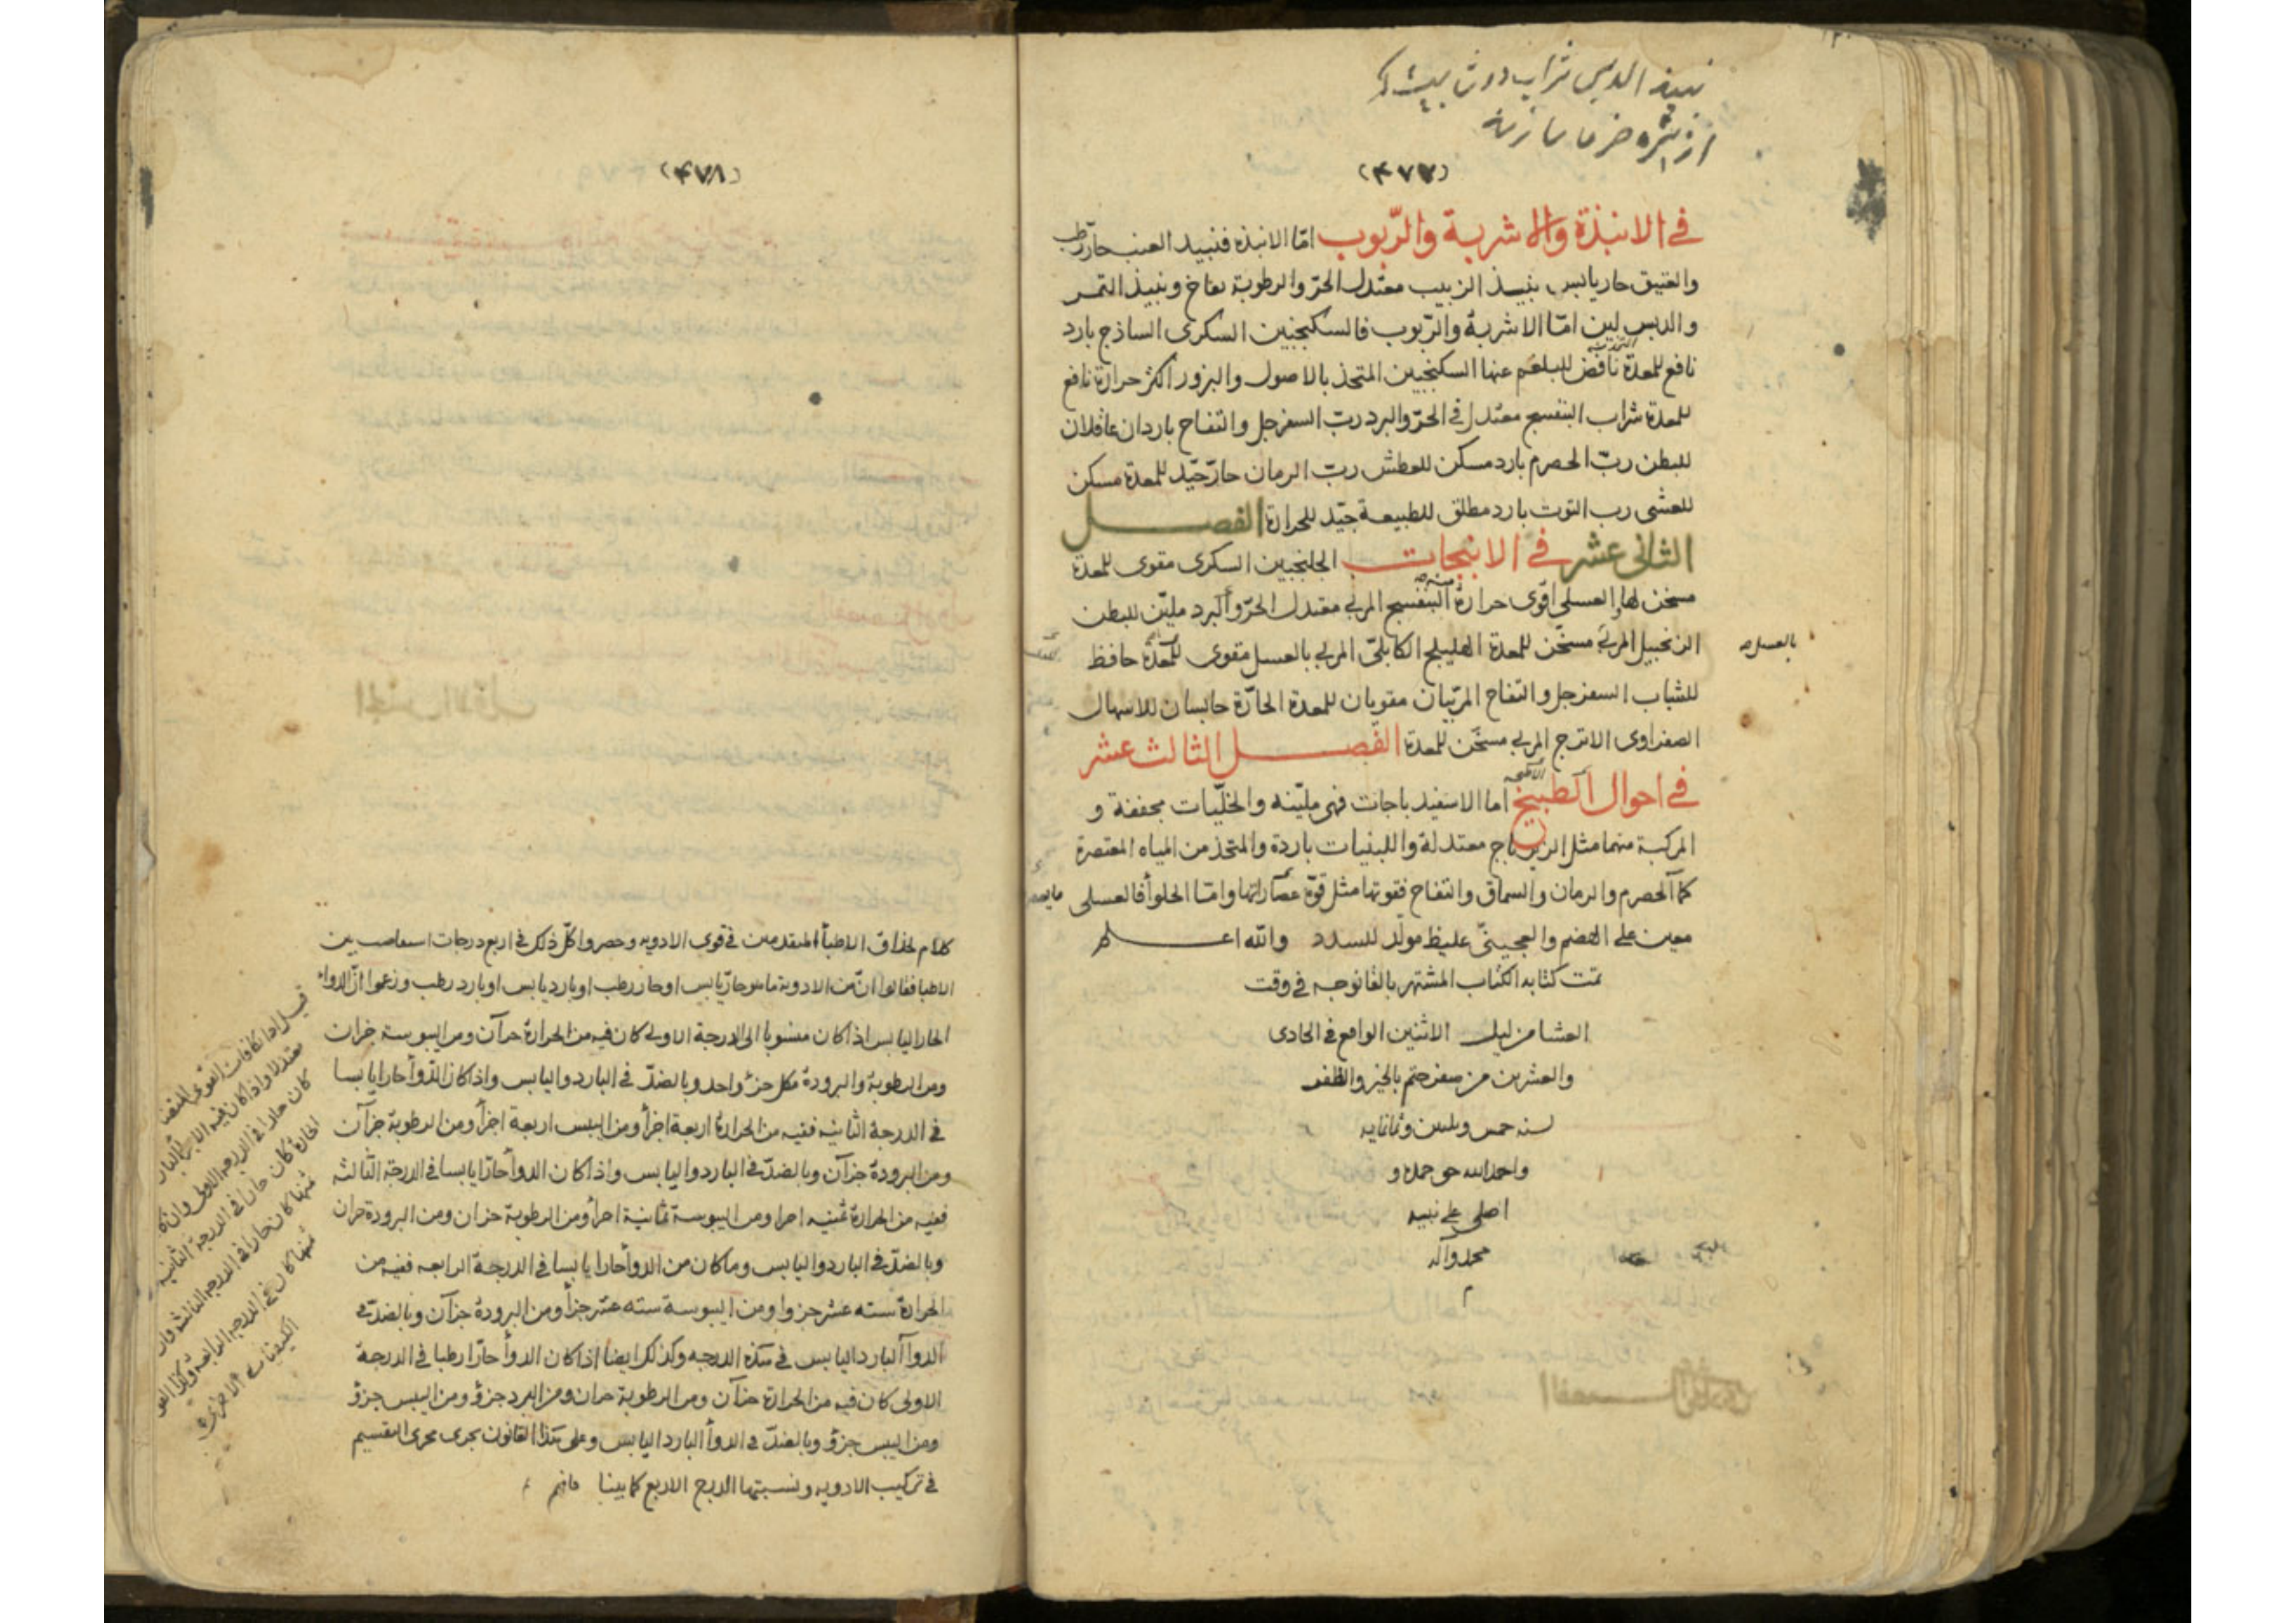 نبيذ الدبس شراب دوشاب
از شيره خرما سازند
(۴۷۷)
في الانبذة والاشربة والربوب امّا الانبذة فنبيذ العنب حارّ رطب
والعتيق حار يابس نبيذ الزبيب معتدل الحرّ والرطوبة نفاخ ونبيذ التمر
والدبس لين امّا الاشربة والرّبوب فالسكنجبين السكرى الساذج بارد
نافع للمعدة نافض للبلغم عنها السكنجبين المتخذ بالاصول والبزور اكثر حرارة نافع
للمعدة شراب البنفسج معتدل في الحرّ والبرد ربّ السفرجل والتفاح باردان عاقلان
للبطن ربّ الحصرم بارد مسكن للعطش ربّ الرمان حارّ جيّد للمعدة مسكن
للغشى رب التوث بارد مطلق للطبيعة جيّد للحرارة الفصل
الثانى عشر في الانبجات الجلنجبين السكرى مقوى للمعدة
مسخن لها والعسلى اقوى حرارة البنفسج المربى معتدل الحرّ والبرد مليّن للبطن
الزنجبيل المربى مسخّن للمعدة الهليلج الكابلىّ المربى بالعسل مقوى للمعدة حافظ
بالعسل
للشباب السفرجل والتفاح المربّيان مقويان للمعدة الحارّة حابسان للاسهال
الصفراوى الاترج المربى مسخّن للمعدة الفصل الثالث عشر
في احوال الطبيخ اما الاسفيدباجات فهى مليّنه والخلّيات مجففة و
المركبة منهما مثل الزيرباج معتدلة واللبنيات باردة والمتخذ من المياه المعتصرة
كماء الحصرم والرمان والسماق والتفاح فقوتها مثل قوّة عصاراتها وامّا الحلواء فالعسلى
معين على الهضم والعجينىّ غليظ مولّد للسدد والله اعلم
تمت كتابه الكتاب المشتهر بالفانوجه في وقت
العشا من ليلـ الاثنين الواقع في الحادى
والعشرين من صفر ختم بالخير والظفر
لسنه خمس وثلثين وثمانمايه
واحمد الله حق حمده و
اصلى على نبيه
محمد وآله
م
(۴۷۸)
كلام لحذاق الاطبأ المتقدمين في قوى الادويه وحصروا كلّ ذلك في اربع درجات
الاطبا فقالوا انّ من الادوية ما هو حارّ يابس او حار رطب او بارد يابس او بارد رطب وزعموا انّ الدواء
الحار اليابس اذا كان منسوبا الى الدرجة الاولى كان فيه من الحرارة جزآن ومن اليبوسة جزان
ومن الرطوبة والبرودة مكل جزؤ واحد وبالضدّ في البارد واليابس واذا كان الدّوأ حارا يابسا
في الدرجة الثانيه ففيه من الحرارة اربعة اجزأ ومن اليبس اربعة اجزأ ومن الرطوبة جزآن
ومن البرودة جزآن وبالضدّ في البارد واليابس واذا كان الدوأ حارّا يابسا في الدرجة الثالثه
ففيه من الحرارة ثمنيه اجزا ومن اليبوسة ثمانية اجزأ ومن الرطوبة جزان ومن البرودة جزان
وبالضدّ في البارد واليابس وما كان من الدوأ حارا يابسا في الدرجة الرابعه ففيه من
الحرارة سته عشر جزوا ومن اليبوسة سته عشر جزأ ومن البرودة جزآن وبالضدّ في
الدوأ البارد اليابس في هذه الدرجه وكذلك ايضا اذا كان الدوأ حارّا رطبا في الدرجة
الاولى كان فيه من الحرارة جزآن ومن الرطوبة جزان ومن البرد جزؤ ومن اليبس جزؤ
ومن اليبس جزؤ وبالضدّ في الدوأ البارد اليابس وعلى هذا القانون يجرى مجرى التقسيم
في تركيب الادويه ونسبتها الدرج الاربع كما بينا فافهم
كان حارا في الدرجة الاولى وان
كان حارا في الدرجة الثانيه
كان حارا في الدرجة الثالثه وان
كان في الدرجه الرابعة